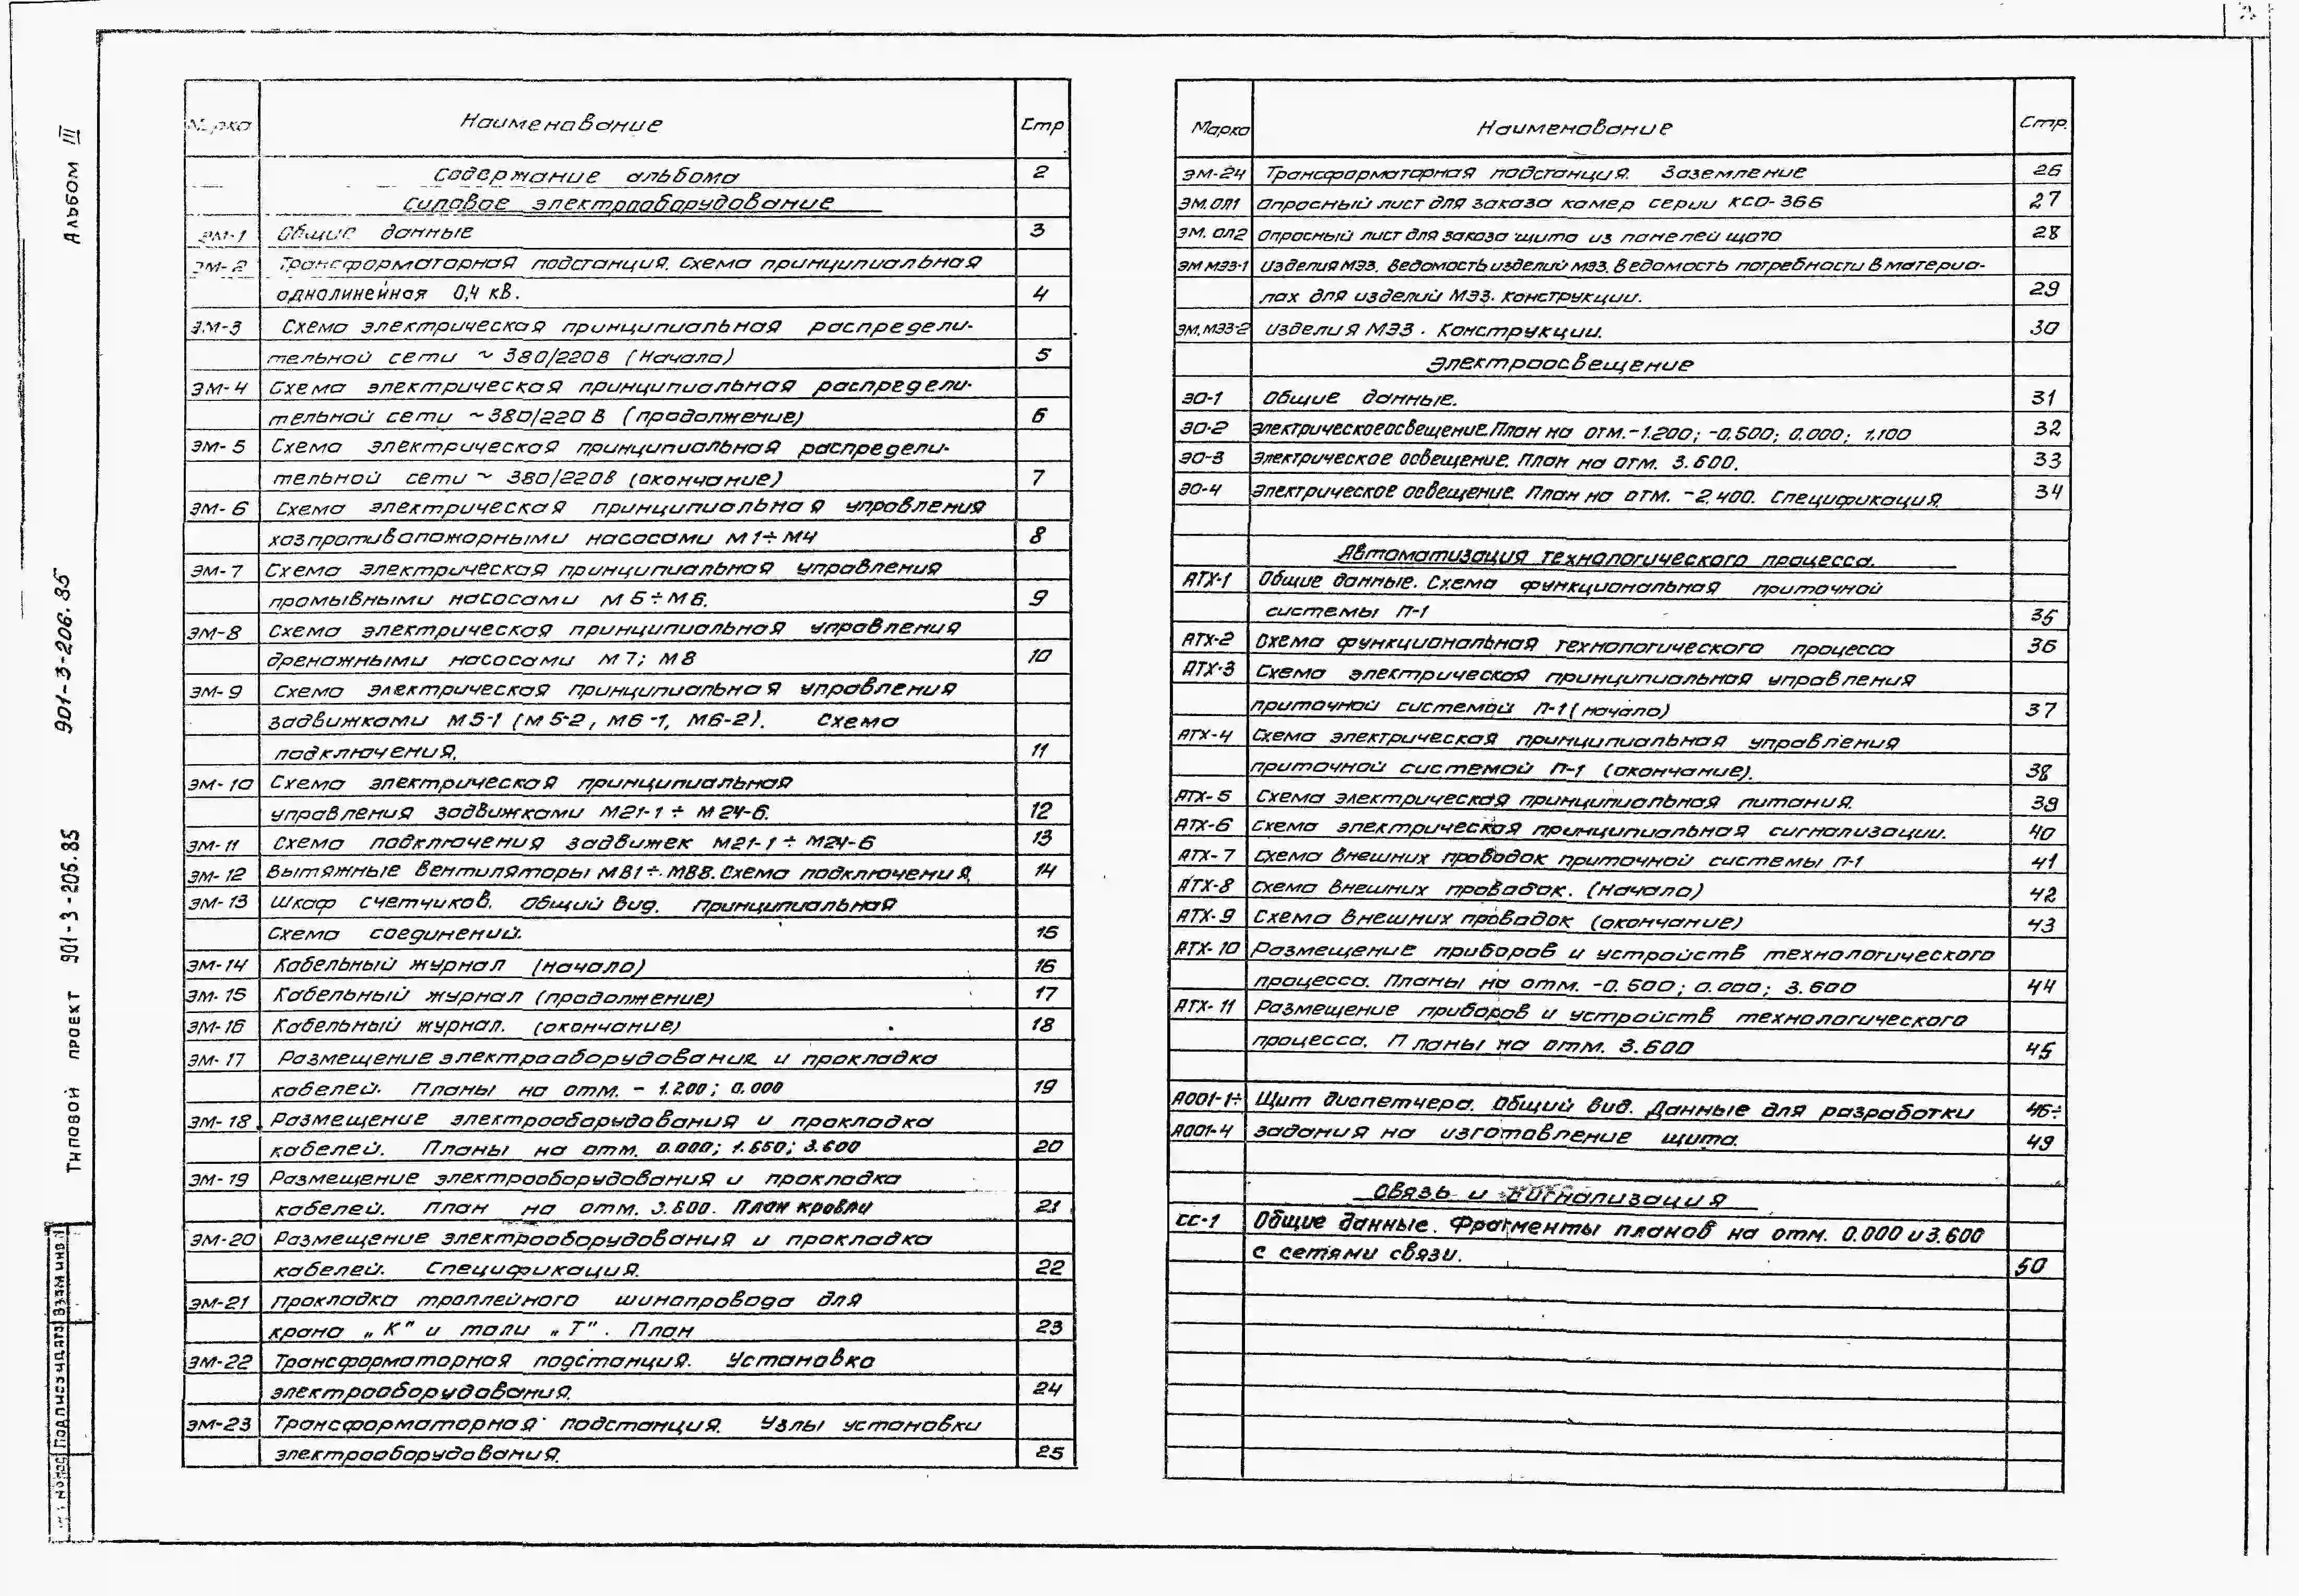 Альбом III
901-3-206.85
Типовой проект 901-3-205.85
Взам инв.
Подпись и дата
Марка Наименование Стр
Содержание альбома 2
Силовое электрооборудование
ЭМ-1 Общие данные 3
ЭМ-2 Трансформаторная подстанция. Схема принципиальная
однолинейная 0,4 кВ. 4
ЭМ-3 Схема электрическая принципиальная распредели-
тельной сети ~ 380/220В (Начало) 5
ЭМ-4 Схема электрическая принципиальная распредели-
тельной сети ~380/220 В (продолжение) 6
ЭМ-5 Схема электрическая принципиальная распредели-
тельной сети ~ 380/220В (окончание) 7
ЭМ-6 Схема электрическая принципиальная управления
хозпротивопожарными насосами М1÷М4 8
ЭМ-7 Схема электрическая принципиальная управления
промывными насосами М5÷М6. 9
ЭМ-8 Схема электрическая принципиальная управления
дренажными насосами М7; М8 10
ЭМ-9 Схема электрическая принципиальная управления
задвижками М5-1 (М5-2, М6-1, М6-2). Схема
подключения. 11
ЭМ-10 Схема электрическая принципиальная
управления задвижками М21-1 ÷ М24-6. 12
ЭМ-11 Схема подключения задвижек М21-1 ÷ М24-6 13
ЭМ-12 Вытяжные вентиляторы МВ1÷МВ8. Схема подключения. 14
ЭМ-13 Шкаф счетчиков. Общий вид. Принципиальная
Схема соединений. 15
ЭМ-14 Кабельный журнал (начало) 16
ЭМ-15 Кабельный журнал (продолжение) 17
ЭМ-16 Кабельный журнал. (окончание) 18
ЭМ-17 Размещение электрооборудования и прокладка
кабелей. Планы на отм. - 1.200; 0.000 19
ЭМ-18 Размещение электрооборудования и прокладка
кабелей. Планы на отм. 0.000; 1.650; 3.600 20
ЭМ-19 Размещение электрооборудования и прокладка
кабелей. План на отм. 3.600. План кровли 21
ЭМ-20 Размещение электрооборудования и прокладка
кабелей. Спецификация. 22
ЭМ-21 прокладка троллейного шинопровода для
крана „К" и тали „Т". План 23
ЭМ-22 Трансформаторная подстанция. Установка
электрооборудования. 24
ЭМ-23 Трансформаторная подстанция. Узлы установки
электрооборудования. 25
Марка Наименование Стр.
ЭМ-24 Трансформаторная подстанция. Заземление 26
ЭМ.ОЛ1 Опросный лист для заказа камер серии КСО-366 27
ЭМ.ОЛ2 Опросный лист для заказа щита из панелей ЩО70 28
ЭМ МЭЗ-1 Изделия МЭЗ. Ведомость изделий МЭЗ. Ведомость потребности в материа-
лах для изделий МЭЗ. Конструкции. 29
ЭМ.МЭЗ-2 изделия МЭЗ. Конструкции. 30
Электроосвещение
ЭО-1 Общие данные. 31
ЭО-2 Электрическое освещение. План на отм. -1.200; -0.500; 0.000; 1.100 32
ЭО-3 Электрическое освещение. План на отм. 3.600. 33
ЭО-4 Электрическое освещение. План на отм. -2.400. Спецификация. 34
Автоматизация технологического процесса.
АТХ-1 Общие данные. Схема функциональная приточной
системы П-1 35
АТХ-2 Схема функциональная технологического процесса 36
АТХ-3 Схема электрическая принципиальная управления
приточной системой П-1 (начало) 37
АТХ-4 Схема электрическая принципиальная управления
приточной системой П-1 (окончание). 38
АТХ-5 Схема электрическая принципиальная питания. 39
АТХ-6 Схема электрическая принципиальная сигнализации. 40
АТХ-7 Схема внешних проводок приточной системы П-1 41
АТХ-8 Схема внешних проводок. (Начало) 42
АТХ-9 Схема внешних проводок (окончание) 43
АТХ-10 Размещение приборов и устройств технологического
процесса. Планы на отм. -0.500; 0.000; 3.600 44
АТХ-11 Размещение приборов и устройств технологического
процесса. Планы на отм. 3.600 45
А001-1÷ Щит диспетчера. Общий вид. Данные для разработки 46÷
А001-4 задания на изготовление щита. 49
Связь и сигнализация
СС-1 Общие данные. Фрагменты планов на отм. 0.000 и 3.600
с сетями связи. 50